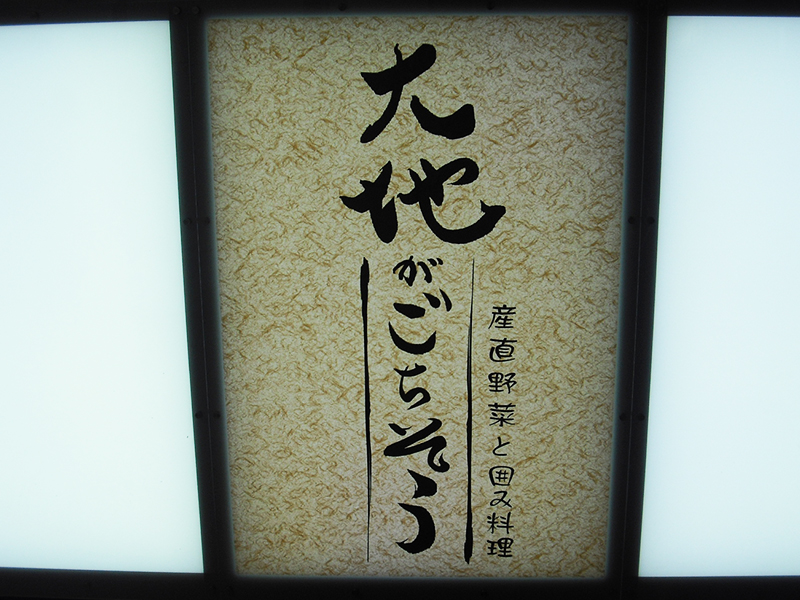 大地がごちそう
産直野菜と囲み料理